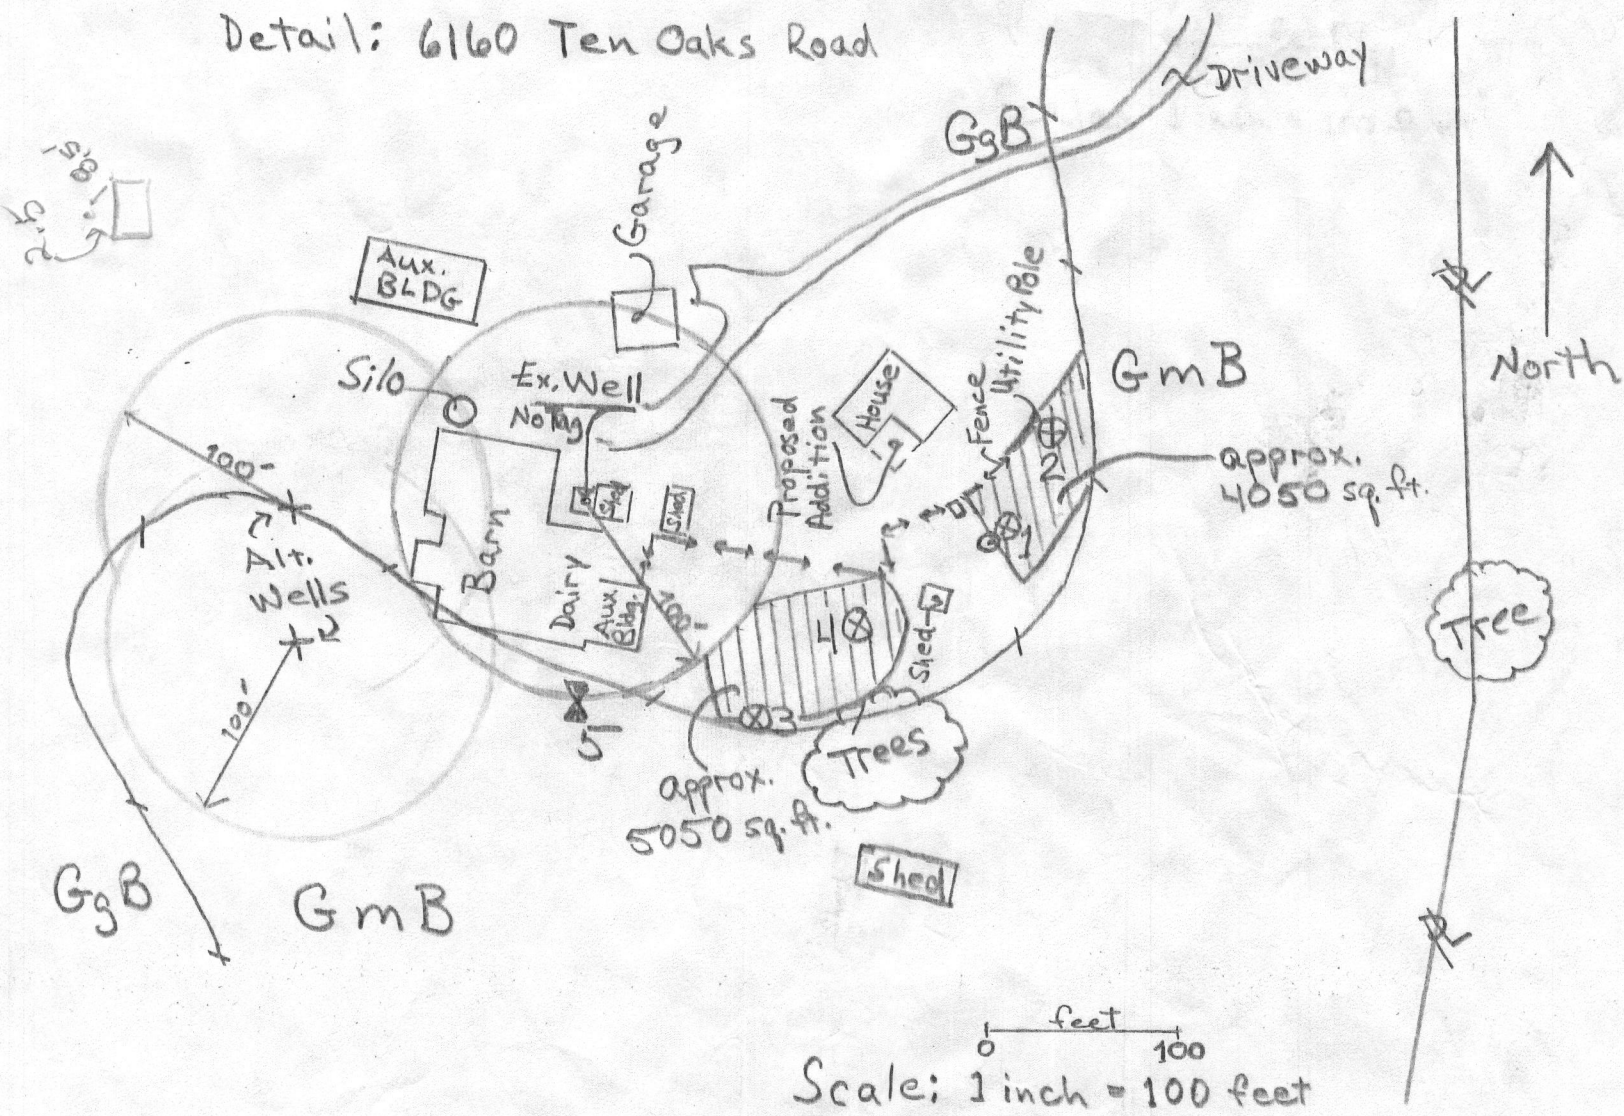 Detail: 6160 Ten Oaks Road
Driveway
GgB
Garage
1.80.
2.5
Aux.
BLDG
Utility Pole
PL
North
Silo
Ex. Well
No Tag
House
Fence
GmB
Proposed
Addition
2
approx.
4050 sq. ft.
100'
Shed
Shed
1
Alt.
Wells
Barn
Dairy
Aux
Bldg.
100'
4
Shed
Tree
100'
3
5
Trees
approx.
5050 sq. ft.
Shed
GgB
GmB
PL
feet
0 100
Scale: 1 inch = 100 feet